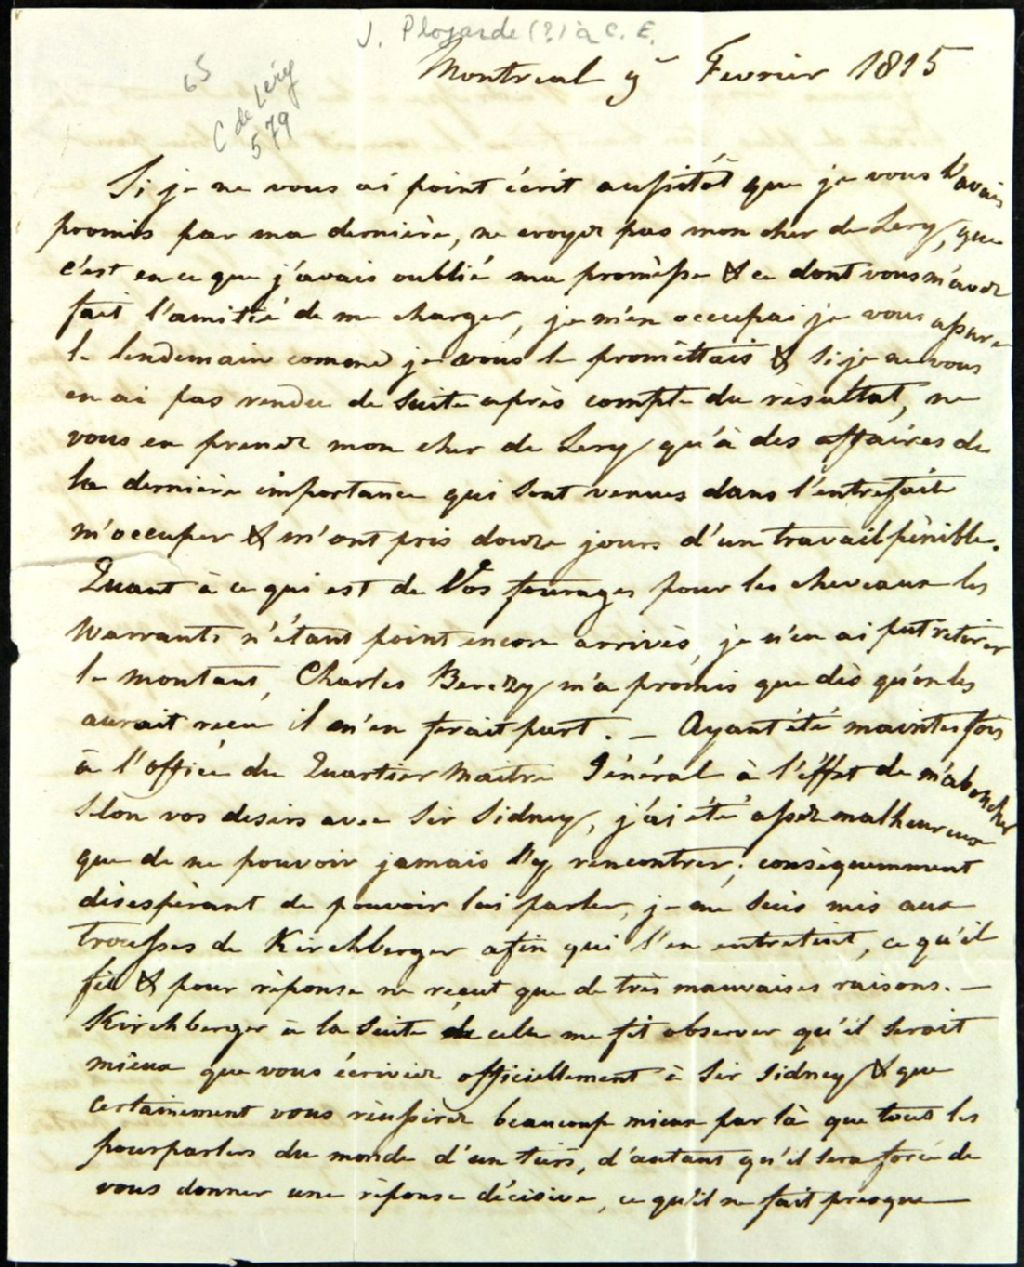 J. Plogarde (?) à C. E.
Montreal 9 Fevrier 1815
65
C de Lery
579
Si je ne vous ai point écrit aussitôt que je vous l'avais
promis par ma dernière, ne croyez pas mon cher de Lery, que
c'est en ce que j'avais oublié ma promèsse & ce dont vous m'avez
fait l'amitié de me charger, je m'en occupai je vous assure
le lendemain comme je vous le promèttais & si je ne vous
en ai pas rendu de suite après compte du résultat, ne
vous en prenez mon cher de Lery qu'à des affaires de
la dernière importance qui sont venues dans l'entrefaite
m'occuper & m'ont pris douze jours d'un travail pénible.
Quant à ce qui est de Vos fourages pour les cheveaux les
Warrants n'étant point encore arrivés, je n'en ai put retirer
le montant, Charles Berczy m'a promis que dès qu'on les
aurait reçu il m'en ferait part. — Ayant été maintes fois
à l'office du Quartier Maitre Général à l'éffet de m'aboucher
selon vos desirs avec Sir Sidney, j'ai été assez malheureux
que de ne pouvoir jamais l'y rencontrer; conséquemment
désespérant de pouvoir lui parler, je me suis mis aux
trousses de Kirchberger afin qui l'en entretint, ce qu'il
fit & pour réponse ne reçut que de très mauvaises raisons. —
Kirchberger à la suite de cela me fit observer qu'il serait
mieux que vous écriviez officiellement à Sir Sidney & que
certainement vous réussirez beaucoup mieux par là que tous les
pourparlers du monde d'un tiers, d'autant qu'il sera forcé de
vous donner une réponse décisive, ce qu'il ne fait presque